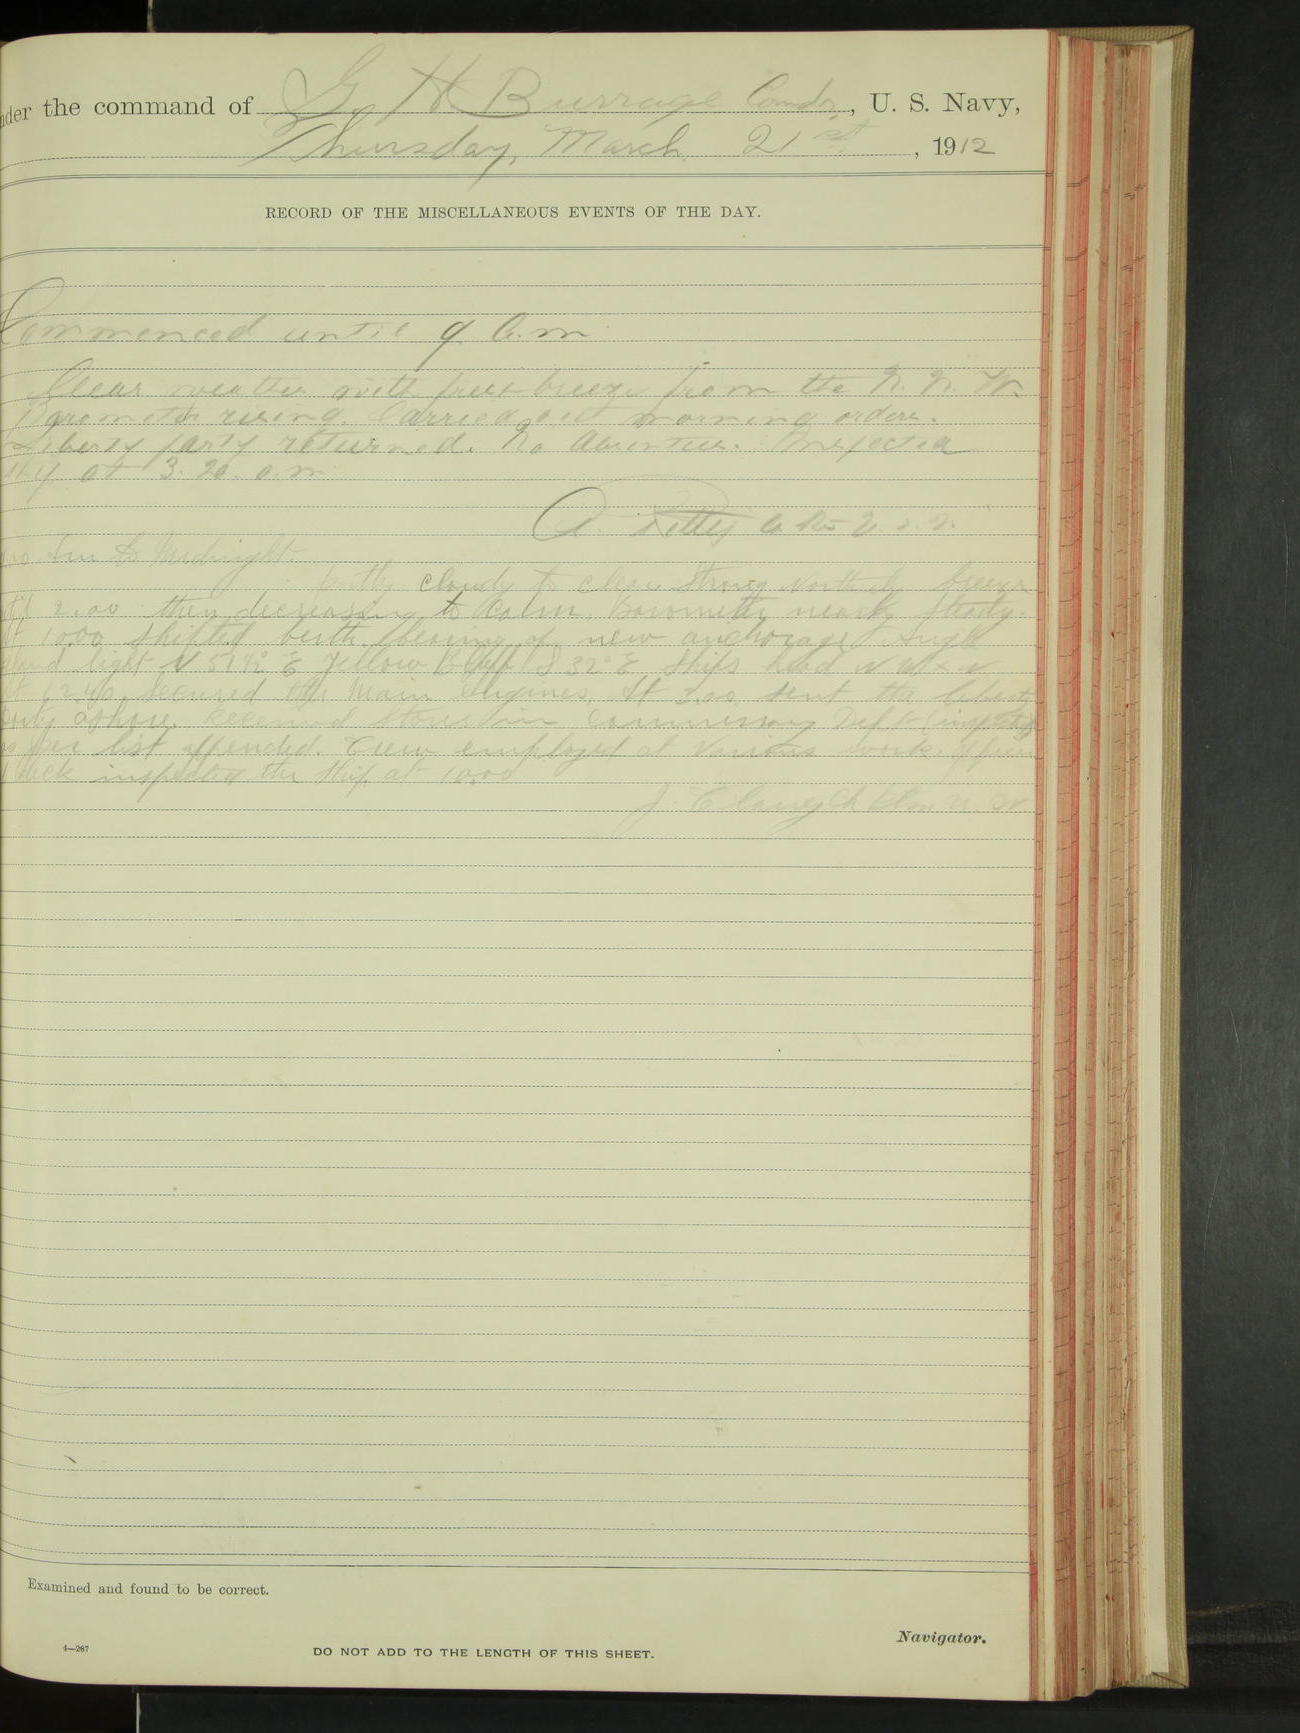 under the command of G. H. Burrage Comdr, U. S. Navy,
Thursday, March 21st, 1912
RECORD OF THE MISCELLANEOUS EVENTS OF THE DAY.
Commenced until 9 a.m
Clear weather with fresh breeze from the N. N. W.
Barometer rising. Carried out morning orders.
Liberty party returned. No absentees. Inspected
at 3.20. a.m
A.
to Midnight.
Partly cloudy to clear strong Northerly breeze
2.00 then decreasing to calm. Barometer nearly steady.
1000 shifted berth, bearing of new anchorage
light N 51½° E Yellow Bluff S 32° E Ships head N W x N
secured the main engines. At sent the liberty
party ashore. Received stores in Commissary Dept (inspected
as per list appended. Crew employed at various work.
inspected the ship at 1000
Examined and found to be correct.
Navigator.
4—267
DO NOT ADD TO THE LENGTH OF THIS SHEET.